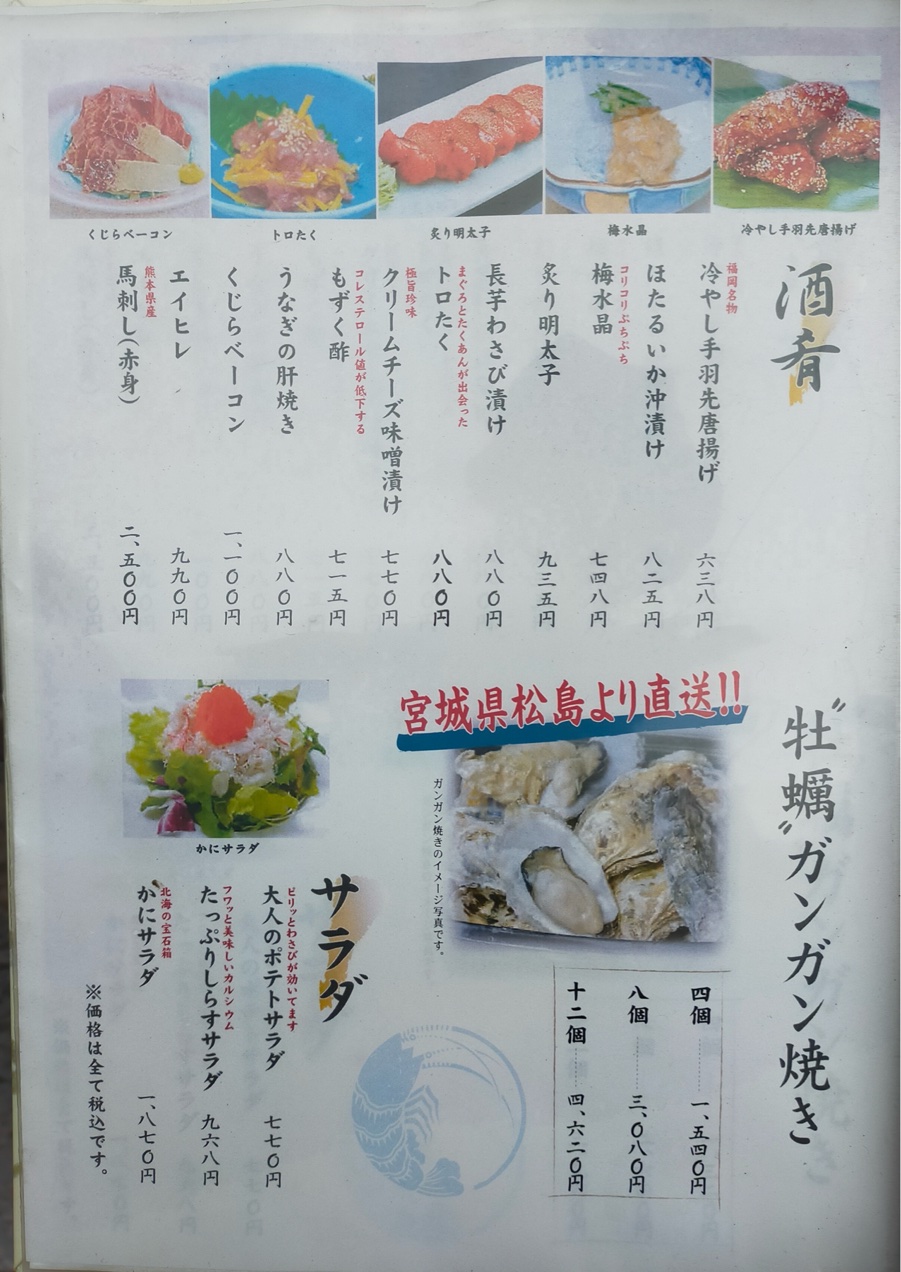 くじらベーコン
トロたく
炙り明太子
梅水晶
冷やし手羽先唐揚げ
酒肴
福岡名物
冷やし手羽先唐揚げ 六三八円
ほたるいか沖漬け 八二五円
コリコリぷちぷち
梅水晶 七四八円
炙り明太子 九三五円
長芋わさび漬け 八八〇円
まぐろとたくあんが出会った
トロたく 八八〇円
極旨珍味
クリームチーズ味噌漬け 七七〇円
コレステロール値が低下する
もずく酢 七一五円
うなぎの肝焼き 八八〇円
くじらベーコン 一、一〇〇円
エイヒレ 九九〇円
熊本県産
馬刺し(赤身) 二、五〇〇円
〝牡蠣〟ガンガン焼き
宮城県松島より直送!!
ガンガン焼きのイメージ写真です。
四個………一、五四〇円
八個………三、〇八〇円
十二個………四、六二〇円
かにサラダ
サラダ
ピリッとわさびが効いてます
大人のポテトサラダ 七七〇円
フワッと美味しいカルシウム
たっぷりしらすサラダ 九六八円
北海の宝石箱
かにサラダ 一、八七〇円
※価格は全て税込です。